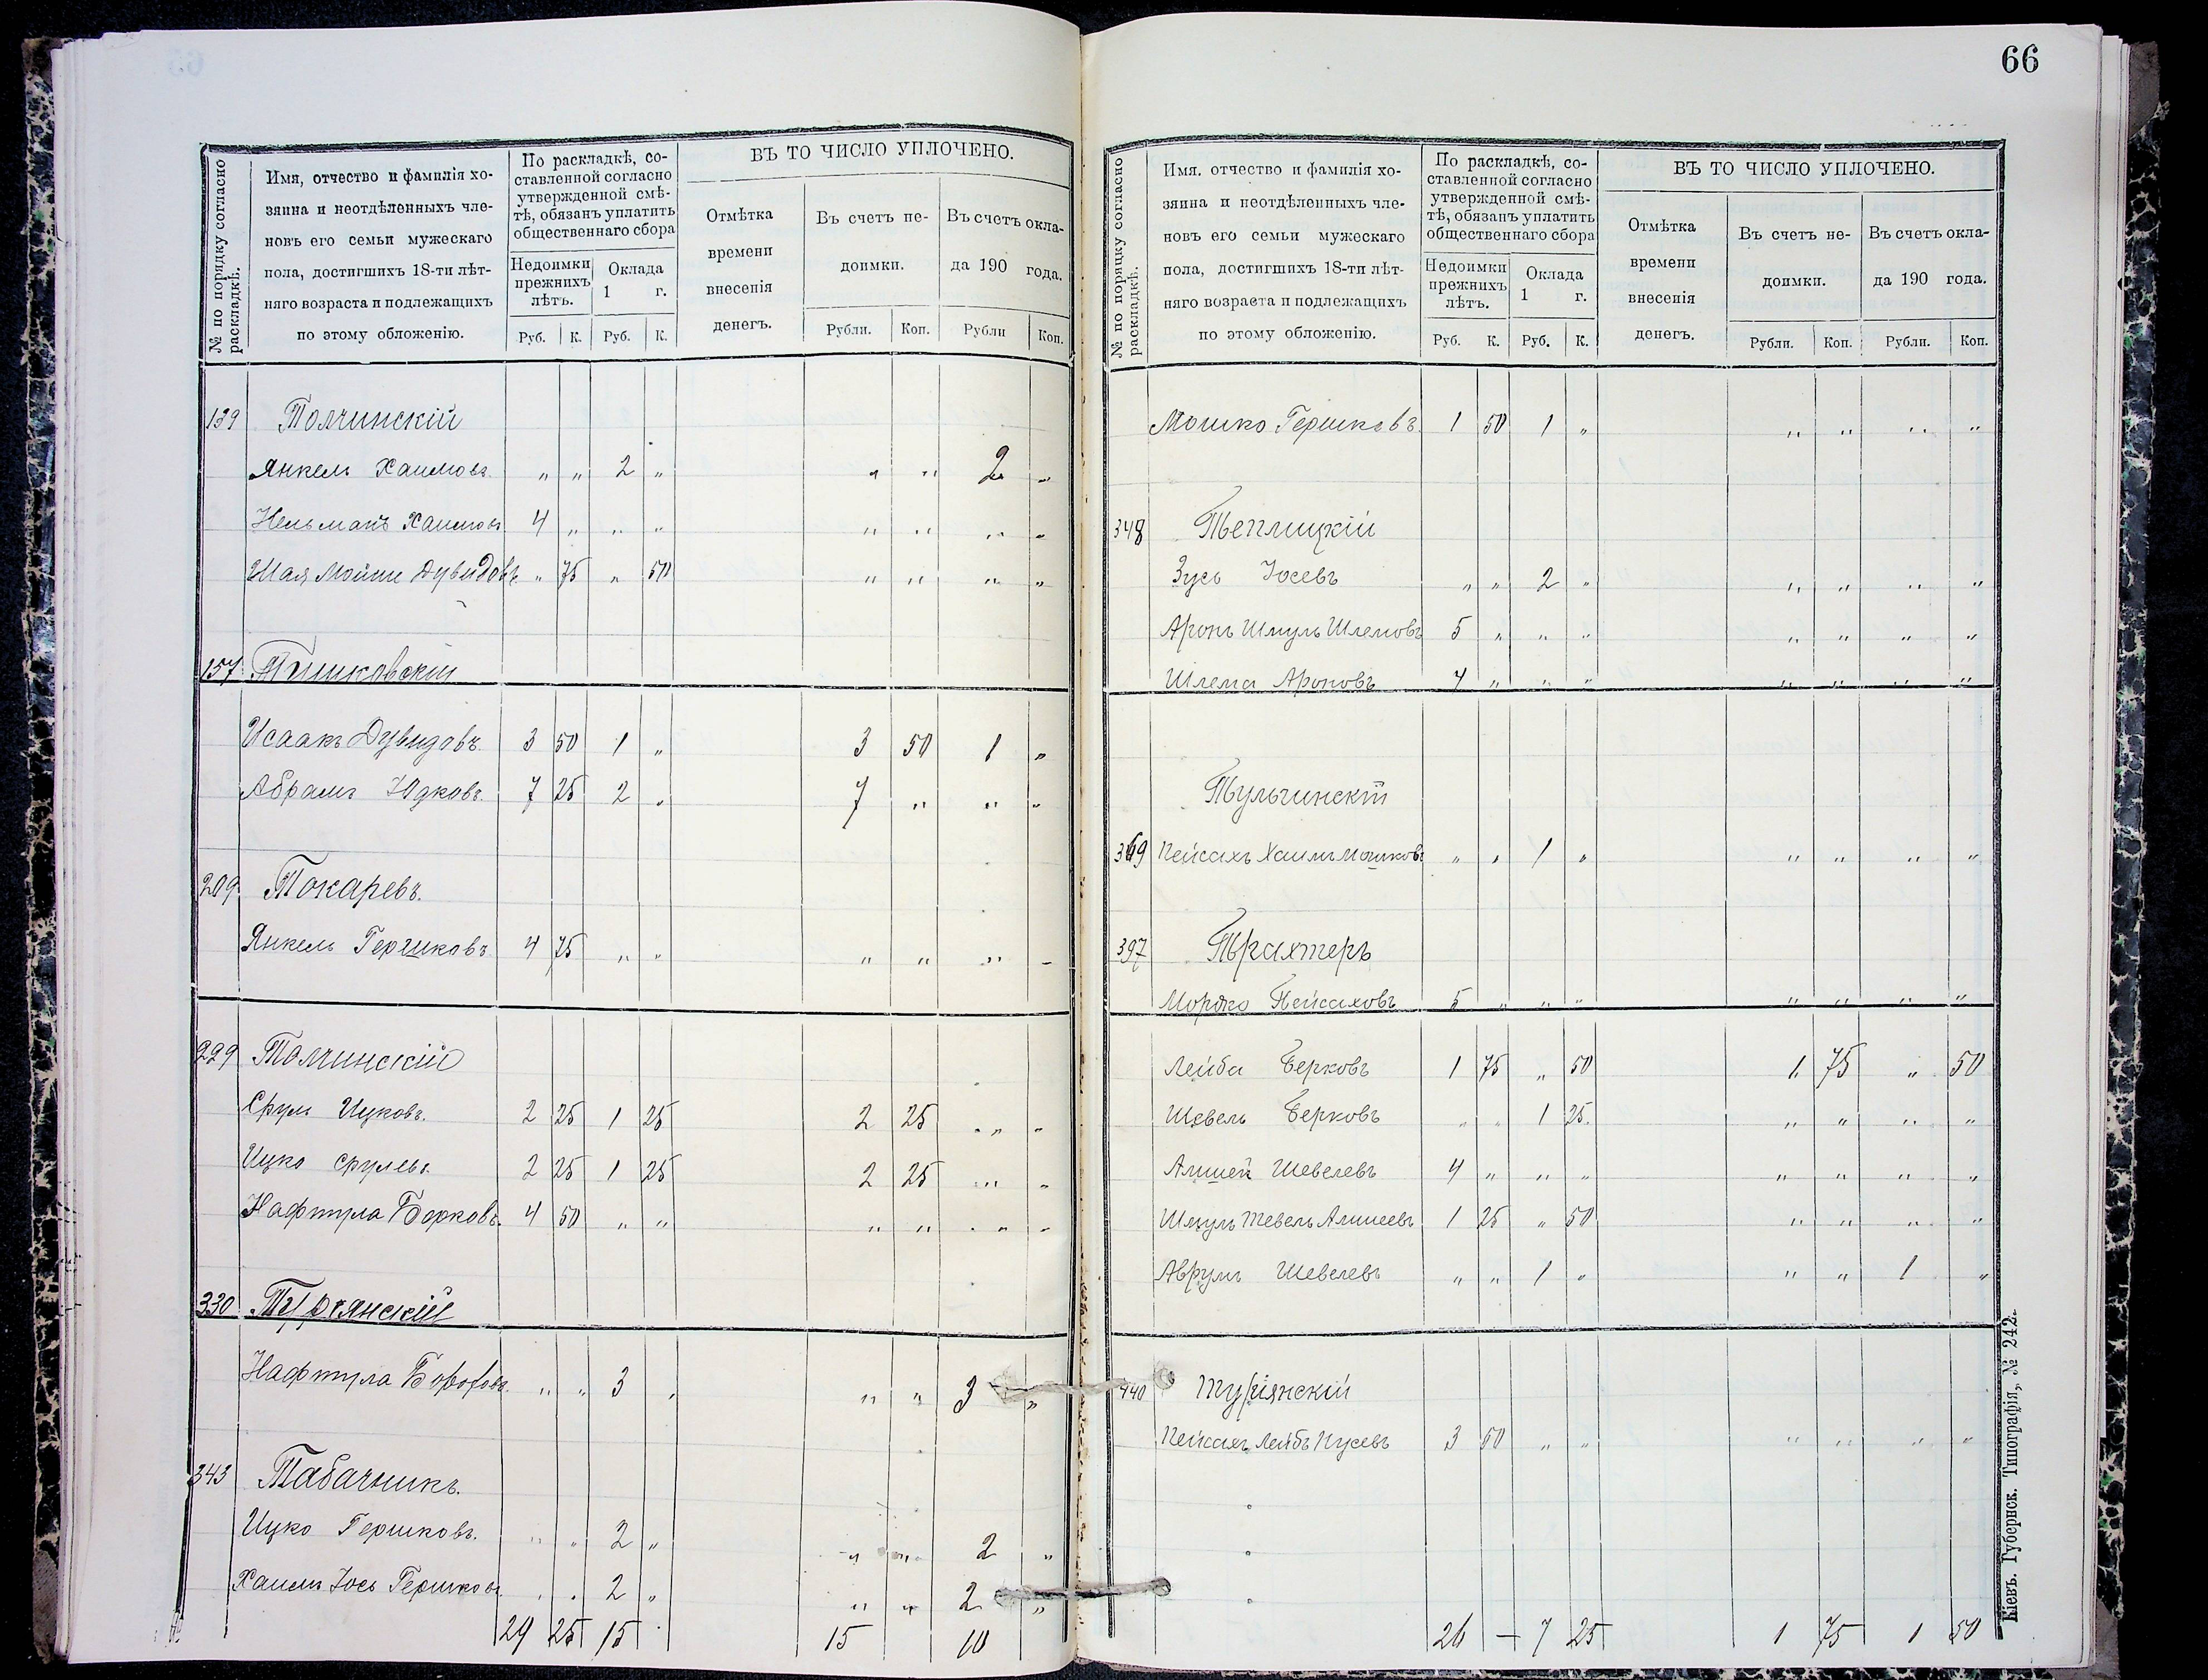 66
№ по порядку согласно раскладкѣ.
Имя, отчество и фамилія хо-
зяина и неотдѣленныхъ чле-
новъ его семьи мужескаго
пола, достигшихъ 18-ти лѣт-
няго возраста и подлежащихъ
по этому обложенію.
По раскладкѣ, со-
ставленной согласно
утвержденной смѣ-
тѣ, обязанъ уплатить
общественнаго сбора
Недоимки прежнихъ лѣтъ.
Оклада 1 г.
Руб. К. Руб. К.
ВЪ ТО ЧИСЛО УПЛОЧЕНО.
Отмѣтка
времени
внесенія
денегъ.
Въ счетъ не-
доимки.
Въ счетъ окла-
да 190 года.
Рубли. Коп. Рубли Коп.
139 Толчинскій
Янкель Хаимовъ. „ „ 2 „ „ „ 2 „
Хаимовъ 4 „ „ „ „ „ „ „
Шая Мойше Дувидовъ „ 75 „ 50 „ „ „ „
157 Тишковскій
Исаакъ Дувидовъ. 3 50 1 „ 3 50 1 „
Абрамъ Юдковъ. 7 25 2 „ 7 „ „ „
209 Токаревъ.
Янкель Гершковъ 4 75 „ „ „ „ „ „
229 Толчинскій
Срулъ Ицковъ. 2 25 1 25 2 25 „ „
Ицко Срулевъ. 2 25 1 25 2 25 „ „
Нафтула Берковъ. 4 50 „ „ „ „ „ „
330 Туріянскій
Нафтула „ „ 3 „ „ „ 3 „
343 Табачникъ.
Ицко Гершковъ. „ „ 2 „ „ „ 2 „
Хаимъ Іось Гершковъ. „ „ 2 „ „ „ 2 „
29 25 15 15 10
№ по порядку согласно раскладкѣ.
Имя. отчество и фамилія хо-
зяина и неотдѣленныхъ чле-
новъ его семьи мужескаго
пола, достигшихъ 18-ти лѣт-
няго возраста и подлежащихъ
по этому обложенію.
По раскладкѣ, со-
ставленной согласно
утвержденной смѣ-
тѣ, обязанъ уплатить
общественнаго сбора
Недоимки прежнихъ лѣтъ.
Оклада 1 г.
Руб. К. Руб. К.
ВЪ ТО ЧИСЛО УПЛОЧЕНО.
Отмѣтка
времени
внесенія
денегъ.
Въ счетъ не-
доимки.
Въ счетъ окла-
да 190 года.
Рубли. Коп. Рубли. Коп.
Мошко Гершковъ. 1 50 1 „ „ „ „ „
348 Теплицкій
Зусь Іосевъ „ „ 2 „ „ „ „ „
Аронъ Шмуль Шлемовъ 5 „ „ „ „ „ „ „
Шлема Ароновъ 4 „ „ „ „ „ „ „
Тульчинскій
369 Пейсахъ Хаимъ Мошковъ „ „ 1 „ „ „ „ „
397 Трахтеръ
Мордко Пейсаховъ 5 „ „ „ „ „ „ „
Лейба Берковъ 1 75 „ 50 1 75 „ 50
Шевель Берковъ „ „ 1 25. „ „ „ „
Шевелевъ 4 „ „ „ „ „ „ „
Шмуль Тевель 1 25 „ 50 „ „ „ „
Аврумъ Шевелевъ „ „ 1 „ „ „ 1 „
440 Туріянскій
Пейсахъ Лейбъ 3 50 „ „ „ „ „ „
26 — 7 25 1 75 1 50
Кіевъ. Губернск. Типографія, № 242.